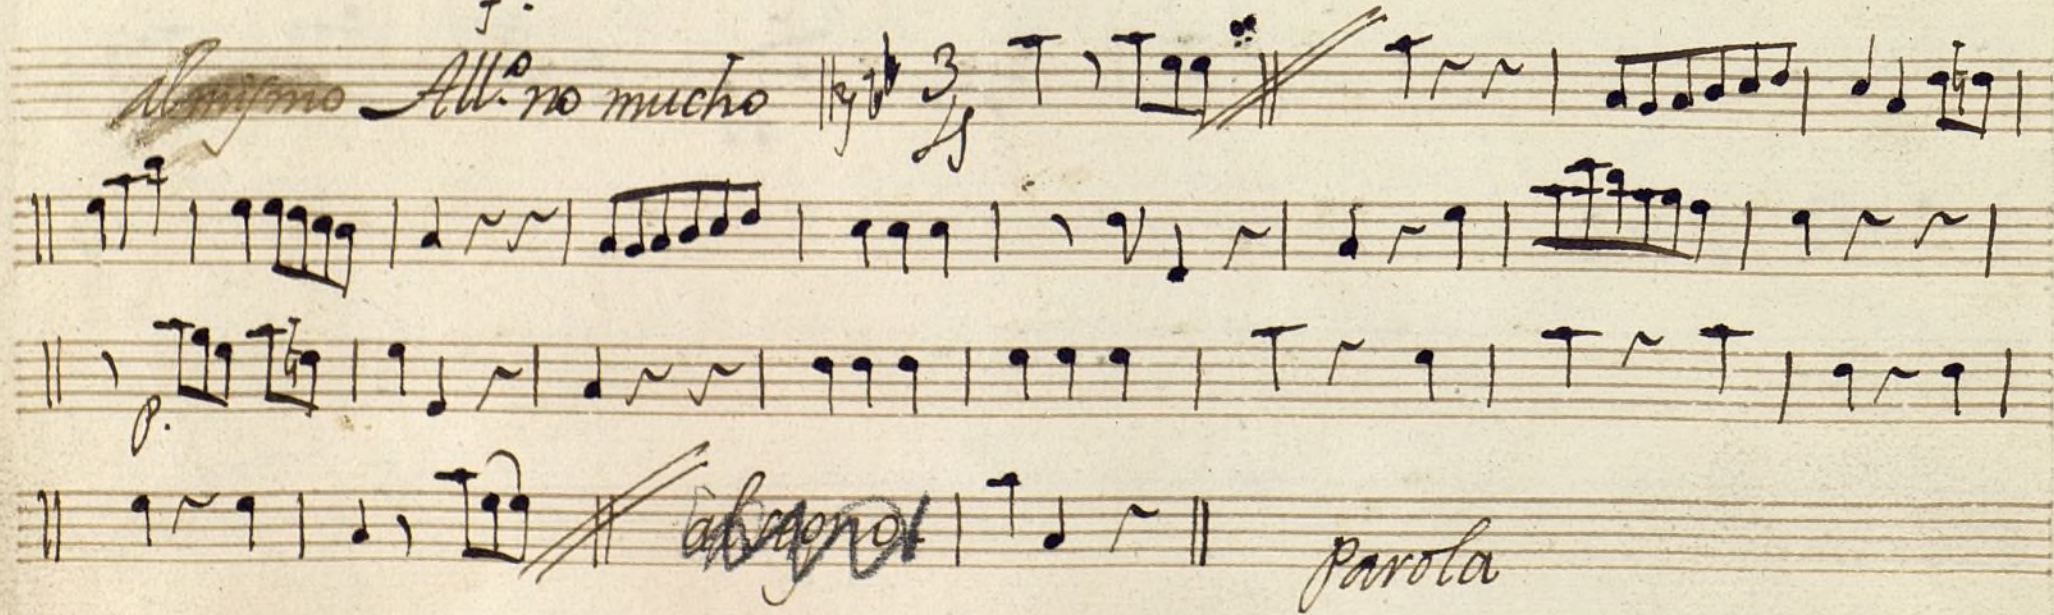 al mismo All.º no mucho 3/4
p.
al segno
Parola